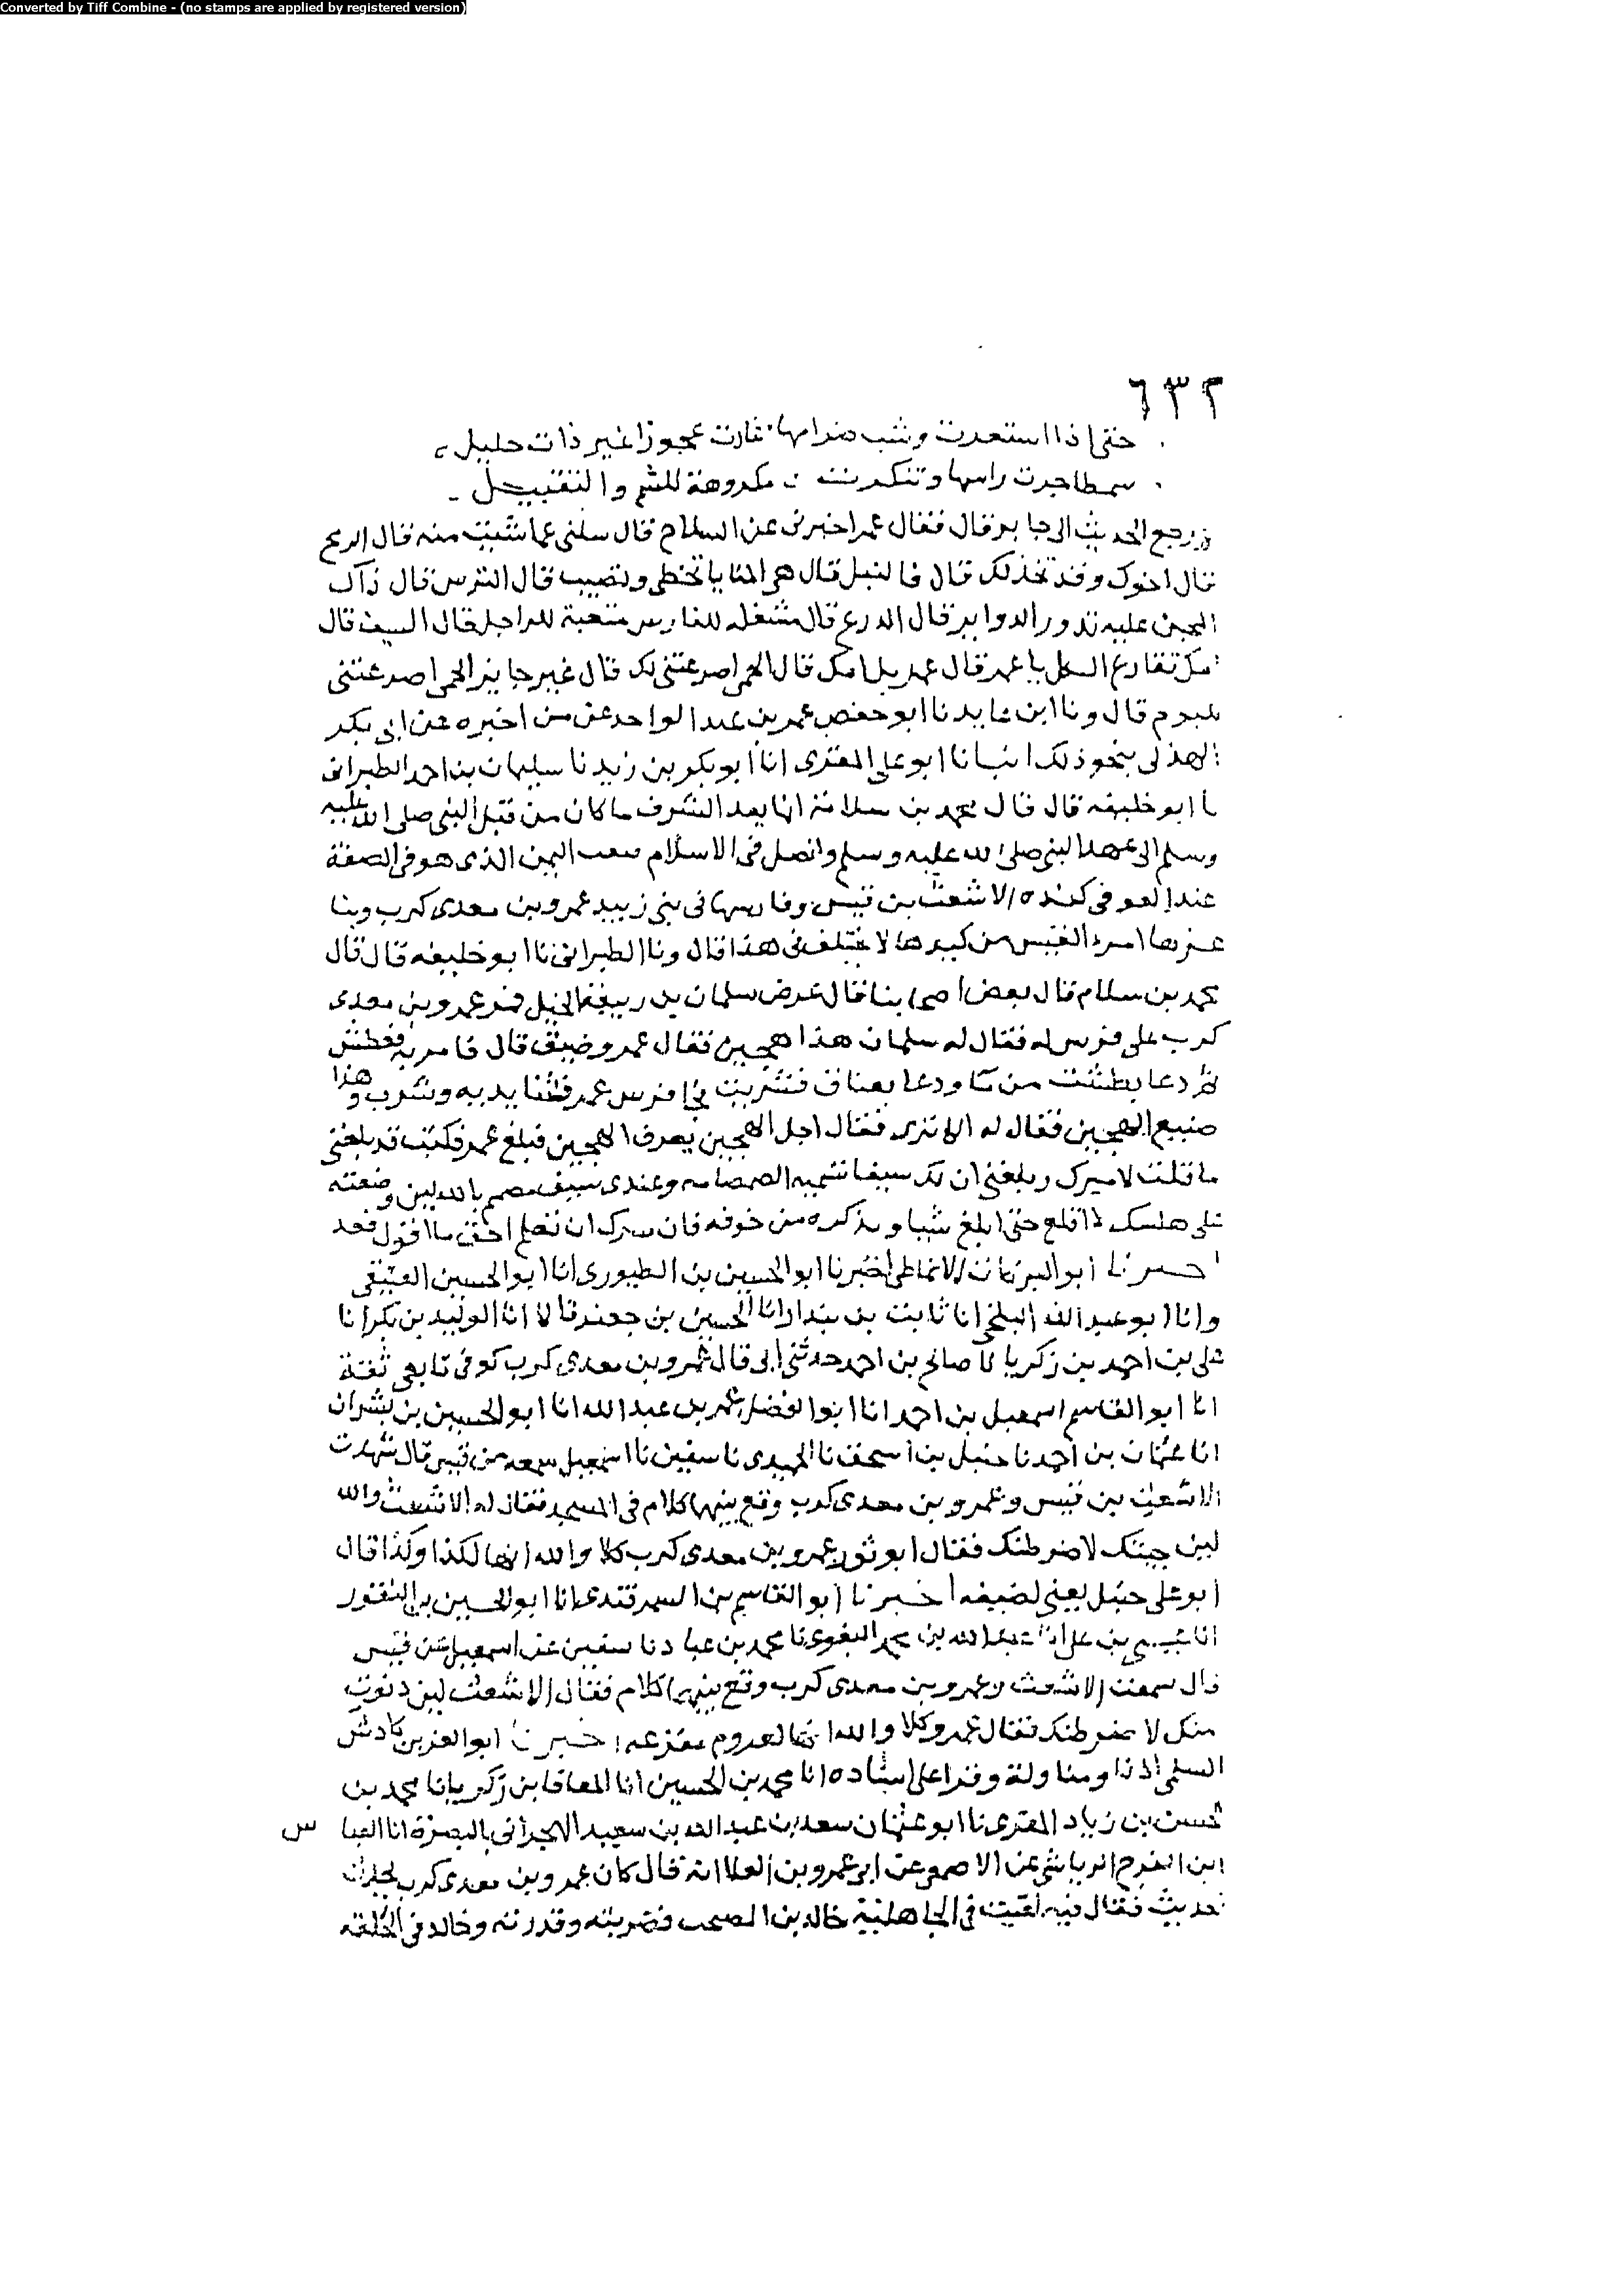 Converted by Tiff Combine - (no stamps are applied by registered version)
٦٣٢
حتى اذا استعرت وشب ضرامها عادت عجوزا غير ذات حليل
سمطا جرت راسها وتنكرت مكروهة للشم والتقبيل
رجع الحديث الى جابر قال فقال عمر اخبرنى عن السلاح قال سلنى عما شيت منه قال الرمح
قال اخوك وقد تخذلك قال فالنبل قال هى المنايا تخطى وتصيب قال الترس قال ذاك
المجن عليه تدور الدواير قال الدرع قال مشغله للفارس متعبة للراجل قال السيف قال
تقارع الثكل يا عمر قال عمر بل امك قال الحمى اصرعتنى لك قال غير جابر الحمى اصرعتنى
اليوم قال ونا ابن عايد نا ابو حفص عمر بن عبد الواحد عن من اخبره عن ابى بكر
الهذلى بنحو ذلك انبانا ابو على المقرى انا ابو بكر بن زيد نا سليمان بن احمد الطبرانى
نا ابو خليفه قال قال محمد بن سلام انما يعد الشرف ما كان من قبل النبى صلى الله عليه
وسلم الى عهد النبى صلى الله عليه وسلم واتصل فى الاسلام اليمن الذى هو فى الصفة
عند فى كنده الاشعث بن قيس وفارسها فى بنى زبيد عمرو بن معدى كرب
امرء القيس من لا يختلف فى هذا قال ونا الطبرانى نا ابو خليفه قال قال
محمد بن سلام قال بعض اصحابنا قال عرض سلمان بن ربيعة الخيل فمر عمرو بن معدى
كرب على فرس له فقال له سلمان هذا هجين فقال عمرو عتيق قال فامر به فعطش
ثم دعا بطشت من ما ودعا بعتاق فشربت فجا فرس عمرو فثنا يديه وشرب وهذا
صنيع الهجين فقال له الا ترى فقال اجل الهجين يعرف الهجين فبلغ عمر فكتب قد بلغنى
ما قلت لاميرك وبلغنى ان لك سيفا تسميه الصمصامه وعندى سيف مصمم بالله لين وضعته
على لا اقلع حتى ابلغ شيا وذكره من جوفه فان سرك ان تعلم احق ما اقول فعد
اخبرنا ابو البركات الانماطى اخبرنا ابو الحسين بن الطيورى انا ابو الحسين العتيقى
وانا ابو عبد الله البلخى انا ثابت بن بندار انا الحسين بن جعفر قالا انا الوليد بن بكر انا
على بن احمد بن زكريا نا صالح بن احمد حدثنى ابى قال عمرو بن معدى كرب كوفى تابعى ثقة
انا ابو القاسم اسمعيل بن احمد انا ابو الفضل عمر بن عبد الله انا ابو الحسين بن بشران
انا عثمان بن احمد نا حنبل بن اسحق نا الحميدى نا سفين نا اسمعيل سمعه من قيس قال شهدت
الاشعث بن قيس وعمرو بن معدى كرب وقع بينهما كلام فى المسجد فقال له الاشعث والله
لين جيتك لاضرطنك فقال ابو ثور عمرو بن معدى كرب كلا والله انها لكذا وكذا قال
ابو على حنبل يعنى لضيفه اخبرنا ابو القاسم بن السمرقندى انا ابو الحسين بن النقور
انا عيسى بن على انا عبد الله بن محمد البغوى نا محمد بن عباد نا سفين عن اسمعيل عن قيس
قال سمعت الاشعث وعمرو بن معدى كرب وقع بينهما كلام فقال الاشعث لين دنوت
منك لاضرطنك فقال عمرو كلا والله انها لعزوم مفزعه اخبرنا ابو العز بن كادش
السلمى اذنا ومناولة وقرا على اسناده انا محمد بن الحسين انا المعافا بن زكريا نا محمد بن
الحسن بن زياد المقرى نا ابو عثمان سعد بن عبد الله بن سعيد بالبصرة انا العباس
ابن الفرج الرياشى عن الاصمعى عن ابى عمرو بن العلا انه قال كان عمرو بن معدى كرب
بحديث فقال فيه لقيت فى الجاهلية خالد بن الصعب فضربته وقدرته وخالد فى الحلقه